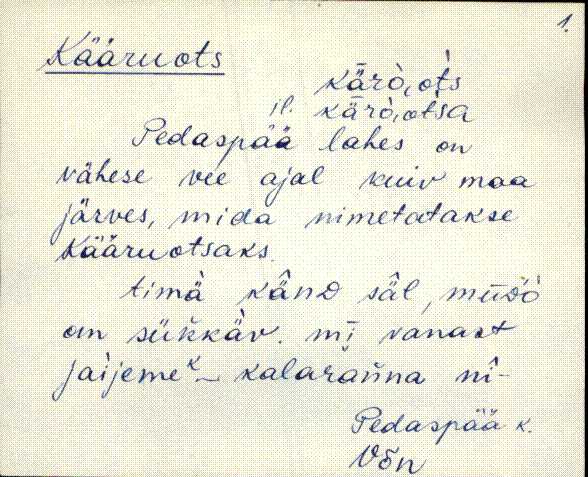 1.
Kääruots
kärò,òt́s
il. kärò,ot́sa
Pedaspää lahes on
vähese vee ajal kuiv maa
järves, mida nimetatakse
Kääruotsaks.
timä kând säl, mūdò
on sükkäv. mi vanast
jäijemeᵏ kalarańna nî-
Pedaspää k.
Võn